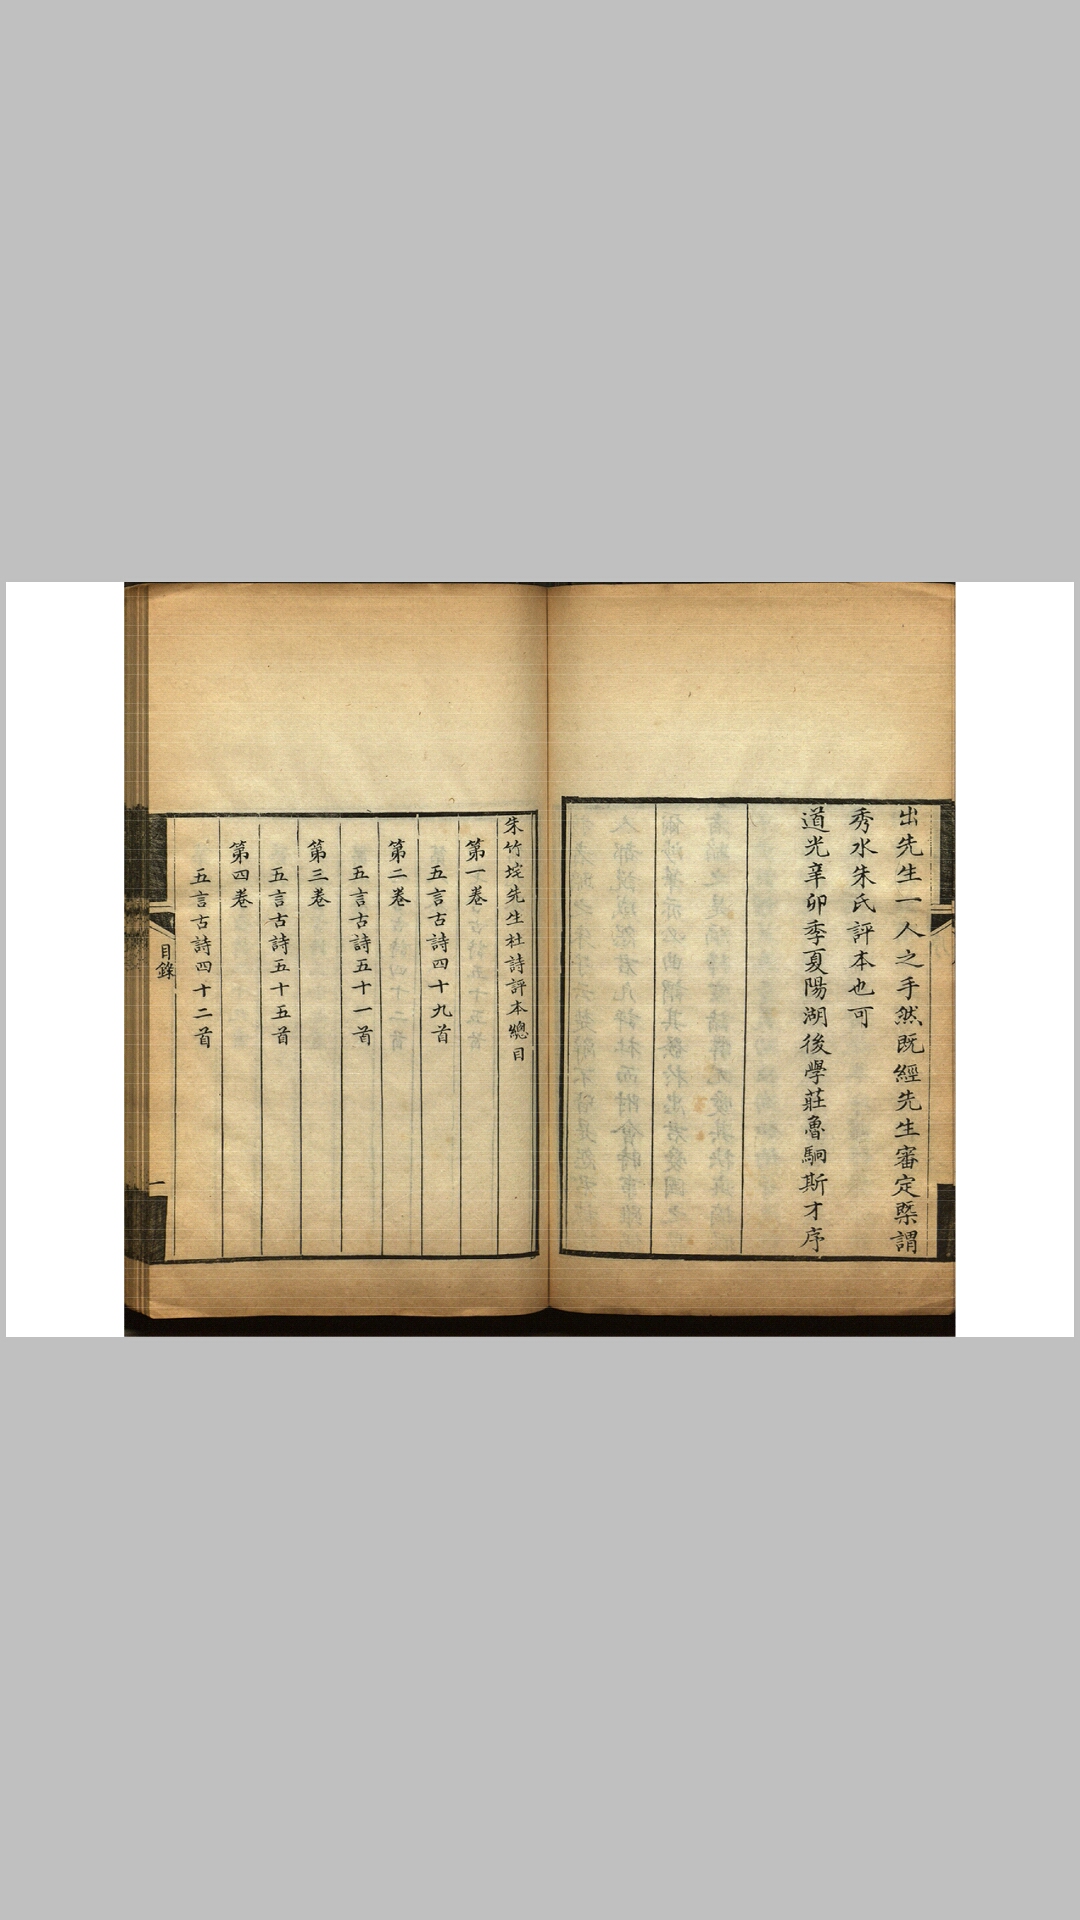 出先生一人之手然既經先生審定槩謂
秀水朱氏評本也可
道光辛卯季夏陽湖後學莊魯駉斯才序
朱竹垞先生杜詩評本總目
第一卷
五言古詩四十九首
第二卷
五言古詩五十一首
第三卷
五言古詩五十五首
第四卷
五言古詩四十二首
目錄
一